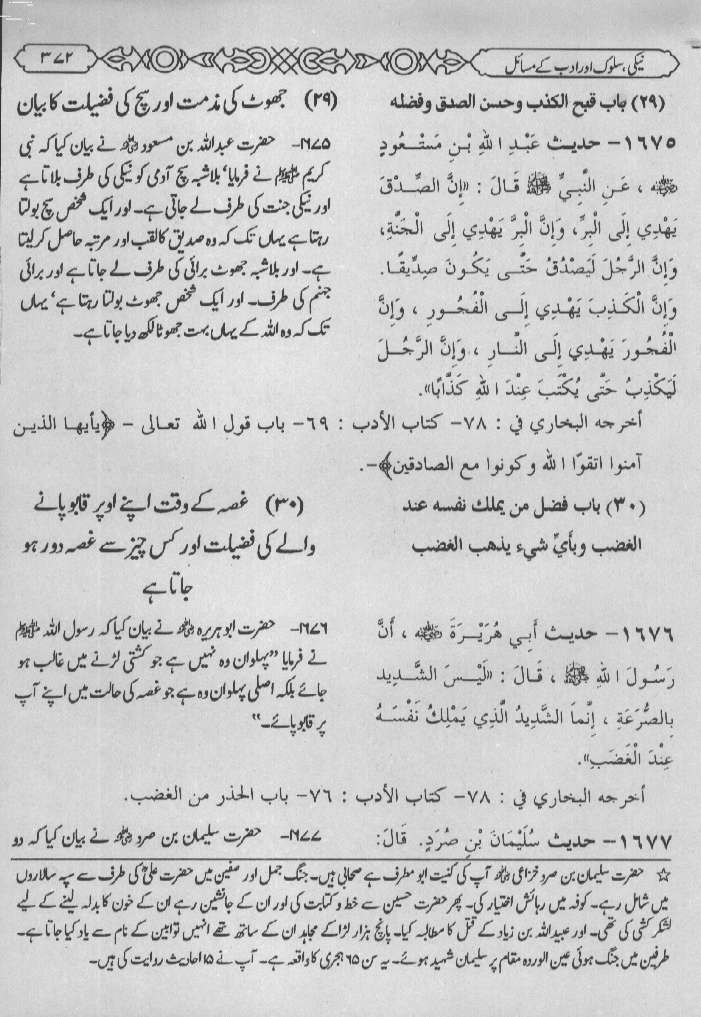 نیکی، سلوک اور ادب کے مسائل
۳۷۲
(٢٩) باب قبح الكذب وحسن الصدق وفضله
(۲۹) جھوٹ کی مذمت اور سچ کی فضیلت کا بیان
١٦٧٥- حديث عَبْدِ اللهِ بْنِ مَسْعُودٍ
ﷺ ، عَنِ النَّبِيِّ ﷺ قَالَ : «إِنَّ الصِّدْقَ
يَهْدِي إِلَى الْبِرِّ، وَإِنَّ الْبِرَّ يَهْدِي إِلَى الْجَنَّةِ،
وَإِنَّ الرَّجُلَ لَيَصْدُقُ حَتَّى يَكُونَ صِدِّيقًا.
وَإِنَّ الْكَذِبَ يَهْدِي إِلَى الْفُجُورِ ، وَإِنَّ
الْفُجُورَ يَهْدِي إِلَى النَّارِ ، وَإِنَّ الرَّجُلَ
لَيَكْذِبُ حَتَّى يُكْتَبَ عِنْدَ اللهِ كَذَّابًا».
۱۶۷۵- حضرت عبداللہ بن مسعود رضی اللہ عنہ نے بیان کیا کہ نبی
کریم ﷺ نے فرمایا ‘ بلاشبہ سچ آدمی کو نیکی کی طرف بلاتا ہے
اور نیکی جنت کی طرف لے جاتی ہے۔ اور ایک شخص سچ بولتا
رہتا ہے یہاں تک کہ وہ صدیق کا لقب اور مرتبہ حاصل کر لیتا
ہے۔ اور بلاشبہ جھوٹ برائی کی طرف لے جاتا ہے اور برائی
جہنم کی طرف۔ اور ایک شخص جھوٹ بولتا رہتا ہے‘ یہاں
تک کہ وہ اللہ کے یہاں بہت جھوٹا لکھ دیا جاتا ہے۔
أخرجه البخاري في : ٧٨- كتاب الأدب : ٦٩- باب قول الله تعالى - ﴿يأيها الذين
آمنوا اتقوا الله وكونوا مع الصادقين﴾-.
(٣٠) باب فضل من يملك نفسه عند
الغضب وبأيّ شيء يذهب الغضب
(۳۰) غصہ کے وقت اپنے اوپر قابو پانے
والے کی فضیلت اور کس چیز سے غصہ دور ہو
جاتا ہے
١٦٧٦- حديث أَبِي هُرَيْرَةَ رضی اللہ عنہ ، أَنَّ
رَسُولَ اللهِ ﷺ ، قَالَ : «لَيْسَ الشَّدِيد
بِالصُّرَعَةِ ، إِنَّمَا الشَّدِيدُ الَّذِي يَمْلِكُ نَفْسَهُ
عِنْدَ الْغَضَبِ».
۱۶۷۶- حضرت ابو ہریرہ رضی اللہ عنہ نے بیان کیا کہ رسول اللہ ﷺ
نے فرمایا “پہلوان وہ نہیں ہے جو کشتی لڑنے میں غالب ہو
جائے بلکہ اصلی پہلوان وہ ہے جو غصہ کی حالت میں اپنے آپ
پر قابو پائے۔”
أخرجه البخاري في : ٧٨- كتاب الأدب : ٧٦- باب الحذر من الغضب.
١٦٧٧- حديث سُلَيْمَانَ بْنِ صُرَدٍ. قَالَ:
۱۶۷۷- حضرت سلیمان بن صرد رضی اللہ عنہ نے بیان کیا کہ دو
☆ حضرت سلیمان بن صرد خزاعی رضی اللہ عنہ آپ کی کنیت ابو مطرف ہے صحابی ہیں۔ جنگ جمل اور صفین میں حضرت علیؓ کی طرف سے سپہ سالاروں
میں شامل رہے۔ کوفہ میں رہائش اختیار کی۔ پھر حضرت حسین سے خط و کتابت کی اور ان کے جانشین رہے ان کے خون کا بدلہ لینے کے لیے
لشکر کشی کی تھی۔ اور عبیداللہ بن زیاد کے قتل کا مطالبہ کیا۔ پانچ ہزار لڑاکے مجاہد ان کے ساتھ تھے انہیں توابین کے نام سے یاد کیا جاتا ہے۔
طرفین میں جنگ ہوئی عین الوردہ مقام پر سلیمان شہید ہوئے۔ یہ سن ۶۵ ہجری کا واقعہ ہے۔ آپ نے ۱۵ احادیث روایت کی ہیں۔